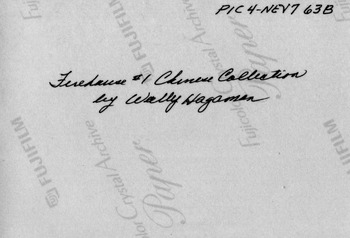 PIC 4-NEV7 63B
Firehouse #1 Chinese Collection
by Wally Hagaman
FUJIFILM
Fujicolor Crystal Archive
Paper
FUJIFILM
Fujicolor Crystal Archive
Paper
FUJIFILM